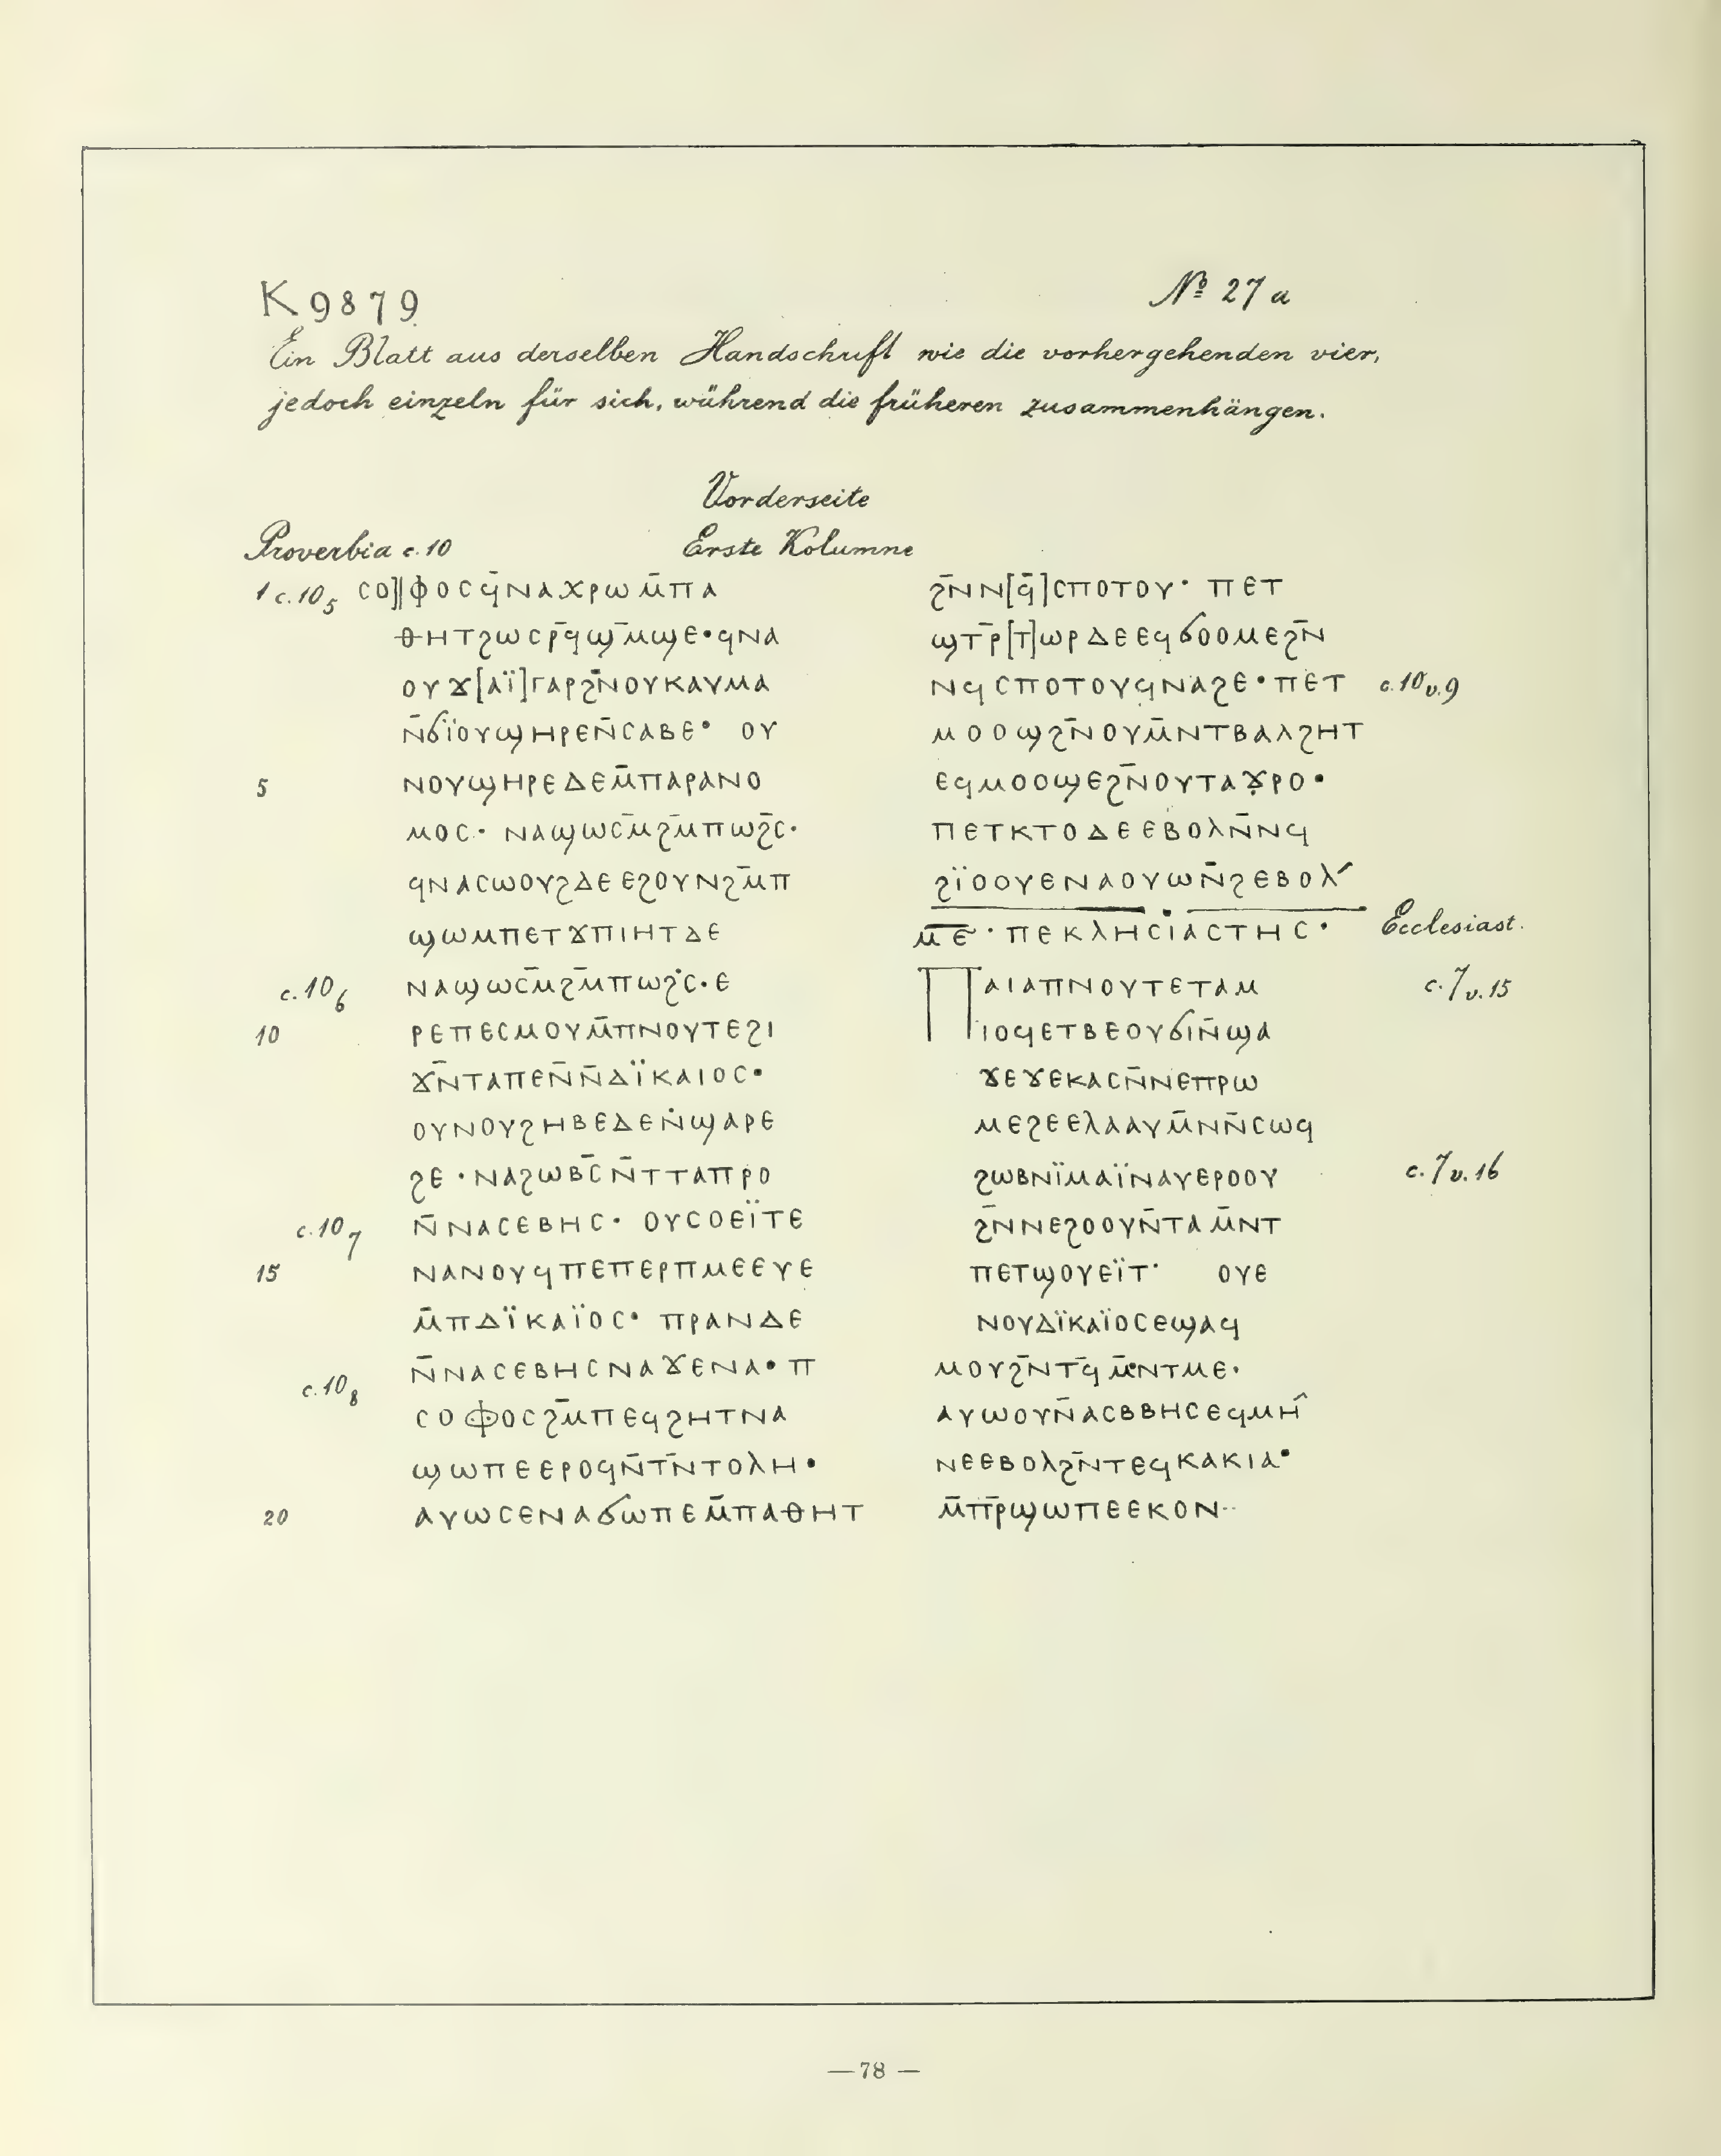 K 9879
№ 27 a
Ein Blatt aus derselben Handschrift wie die vorhergehenden vier,
jedoch einzeln für sich, während die früheren zusammenhängen.
Vorderseite
Proverbia c. 10
Erste Kolumne
1 c. 10 5 ⲥⲟ]]ⲫⲟⲥϥ̄ⲛⲁⲭⲣⲱⲙ̄ⲡⲁ
ⲑⲏⲧϩⲱⲥⲣ̄ϥϣ̄ⲙϣⲉ•ϥⲛⲁ
ⲟⲩϫ[ⲁⲓ̈]ⲅⲁⲣϩⲛ̄ⲟⲩⲕⲁⲩⲙⲁ
ⲛ̄ϭⲓ̈ⲟⲩϣⲏⲣⲉⲛ̄ⲥⲁⲃⲉ• ⲟⲩ
5 ⲛⲟⲩϣⲏⲣⲉⲇⲉⲙ̄ⲡⲁⲣⲁⲛⲟ
ⲙⲟⲥ· ⲛⲁϣⲱⲥ̄ⲙϩ̄ⲙⲡⲱϩ̄ⲥ·
ϥⲛⲁⲥⲱⲟⲩϩⲇⲉⲉϩⲟⲩⲛϩ̄ⲙⲡ
ϣⲱⲙⲡⲉⲧϫⲡⲓⲏⲧⲇⲉ
c. 10 6 ⲛⲁϣⲱⲥ̄ⲙϩ̄ⲙⲡⲱϩ̇ⲥ·ⲉ
10 ⲣⲉⲡⲉⲥⲙⲟⲩⲙ̄ⲡⲛⲟⲩⲧⲉϩⲓ
ϫ̄ⲛⲧⲁⲡⲉⲛ̄ⲛ̄ⲇⲓ̈ⲕⲁⲓⲟⲥ•
ⲟⲩⲛⲟⲩϩⲏⲃⲉⲇⲉⲛ̇ϣⲁⲣⲉ
ϩⲉ·ⲛⲁϩⲱⲃ̄ⲥⲛ̄ⲧⲧⲁⲡⲣⲟ
c. 10 7 ⲛ̄ⲛⲁⲥⲉⲃⲏⲥ· ⲟⲩⲥⲟⲉⲓ̈ⲧⲉ
15 ⲛⲁⲛⲟⲩϥⲡⲉⲡⲉⲣⲡⲙⲉⲉⲩⲉ
ⲙ̄ⲡⲇⲓ̈ⲕⲁⲓ̈ⲟⲥ• ⲡⲣⲁⲛⲇⲉ
c. 10 8 ⲛ̄ⲛⲁⲥⲉⲃⲏⲥⲛⲁϫⲉⲛⲁ• ⲡ
ⲥⲟⲫⲟⲥϩ̄ⲙⲡⲉϥϩⲏⲧⲛⲁ
ϣⲱⲡⲉⲉⲣⲟϥⲛ̄ⲧ̄ⲛⲧⲟⲗⲏ•
20 ⲁⲩⲱⲥⲉⲛⲁϭⲱⲡⲉⲙ̄ⲡⲁⲑⲏⲧ
ϩ̄ⲛⲛ[ϥ̄]ⲥⲡⲟⲧⲟⲩ· ⲡⲉⲧ
ϣⲧ̄ⲣ[ⲧ]ⲱⲣⲇⲉⲉϥϭⲟⲟⲙⲉϩ̄ⲛ
ⲛϥⲥⲡⲟⲧⲟⲩϥⲛⲁϩⲉ•ⲡⲉⲧ c. 10 v. 9
ⲙⲟⲟϣϩ̄ⲛⲟⲩⲙ̄ⲛⲧⲃⲁⲗϩⲏⲧ
ⲉϥⲙⲟⲟϣⲉϩ̄ⲛⲟⲩⲧⲁϫⲣⲟ•
ⲡⲉⲧⲕⲧⲟⲇⲉⲉⲃⲟⲗⲛ̄ⲛϥ
ϩⲓ̈ⲟⲟⲩⲉⲛⲁⲟⲩⲱⲛ̄ϩⲉⲃⲟⲗ
ⲙ̅ⲉ̅·ⲡⲉⲕⲗⲏⲥⲓⲁⲥⲧⲏⲥ· Ecclesiast.
ⲡⲁⲓⲁⲡⲛⲟⲩⲧⲉⲧⲁⲙ c. 7 v. 15
ⲓⲟϥⲉⲧⲃⲉⲟⲩϭⲓⲛ̄ϣⲁ
ϫⲉϫⲉⲕⲁⲥⲛ̄ⲛⲉⲡⲣⲱ
ⲙⲉϩⲉⲉⲗⲁⲁⲩⲙ̄ⲛⲛ̄ⲥⲱϥ
ϩⲱⲃⲛⲓ̈ⲙⲁⲓ̈ⲛⲁⲩⲉⲣⲟⲟⲩ c. 7 v. 16
ϩ̄ⲛⲛⲉϩⲟⲟⲩⲛ̄ⲧⲁⲙ̄ⲛⲧ
ⲡⲉⲧϣⲟⲩⲉⲓ̈ⲧ· ⲟⲩⲉ
ⲛⲟⲩⲇⲓ̈ⲕⲁⲓ̈ⲟⲥⲉϣⲁϥ
ⲙⲟⲩϩ̄ⲛⲧ̄ϥⲙ̄ⲛⲧⲙⲉ·
ⲁⲩⲱⲟⲩⲛ̄ⲁⲥⲃⲃⲏⲥⲉϥⲙⲏ̂
ⲛⲉⲉⲃⲟⲗϩ̄ⲛⲧⲉϥⲕⲁⲕⲓⲁ•
ⲙ̄ⲡ̄ⲣϣⲱⲡⲉⲉⲕⲟⲛ··
— 78 —